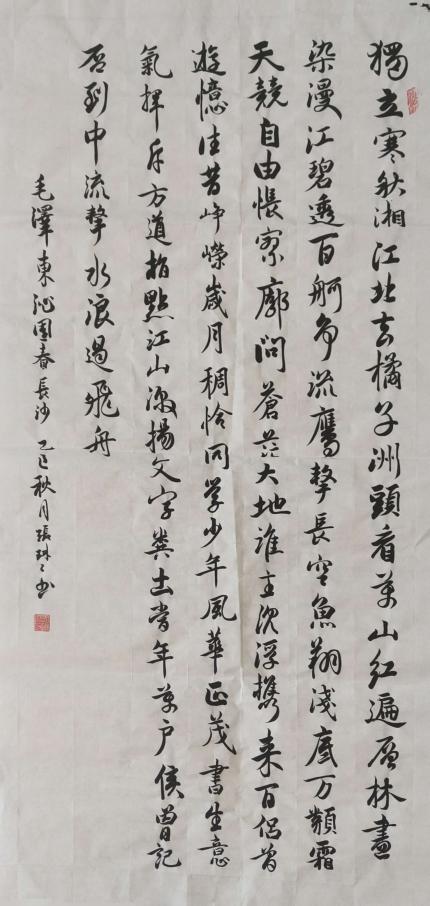 獨立寒秋湘江北去橘子洲頭看萬山紅遍層林盡
染漫江碧透百舸争流鷹擊長空魚翔淺底万類霜
天競自由悵寥廓問蒼茫大地誰主沉浮攜来百侣曾
遊憶往昔崢嶸歲月稠恰同学少年風華正茂書生意
氣揮斥方遒指點江山激揚文字糞土當年萬户侯曾記
否到中流擊水浪遏飛舟
毛澤東沁園春長沙 乙巳秋月張琳々书